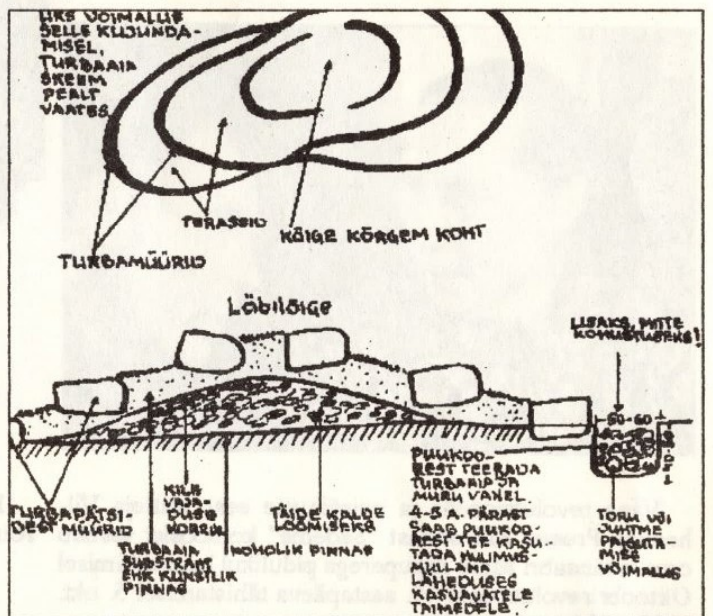 ÜKS VÕIMALUS
SELLE KUJUNDA-
MISEL,
TURBAAIA
SKEEM
PEALT
VAATES
TERASSID
KÕIGE KÕRGEM KOHT
TURBAMÜÜRID
Läbilõige
LISAKS, MITTE
KOHUSTUSEKS!
50-60
TURBAPÄTSI-
DEST MÜÜRID
TURBAAIA
SUBSTRAAT
EHK KUNSTLIK
PINNAS
KILE
VAJA-
DUSE
KORRAL
KOHALIK PINNAS
TÄIDE KALDE
LOOMISEKS
PUUKOO-
REST TEERADA
TURBAAIA JA
MURU VAHEL.
PÄRAST
SAAB PUUKOO-
REST TEE KASU-
TADA HUUMUS-
MULLANA
LÄHEDUSES
KASVAVATELE
TAIMEDELE.
TORU VÕI
JUHTME
PAIGUTA-
MISE
VÕIMALUS